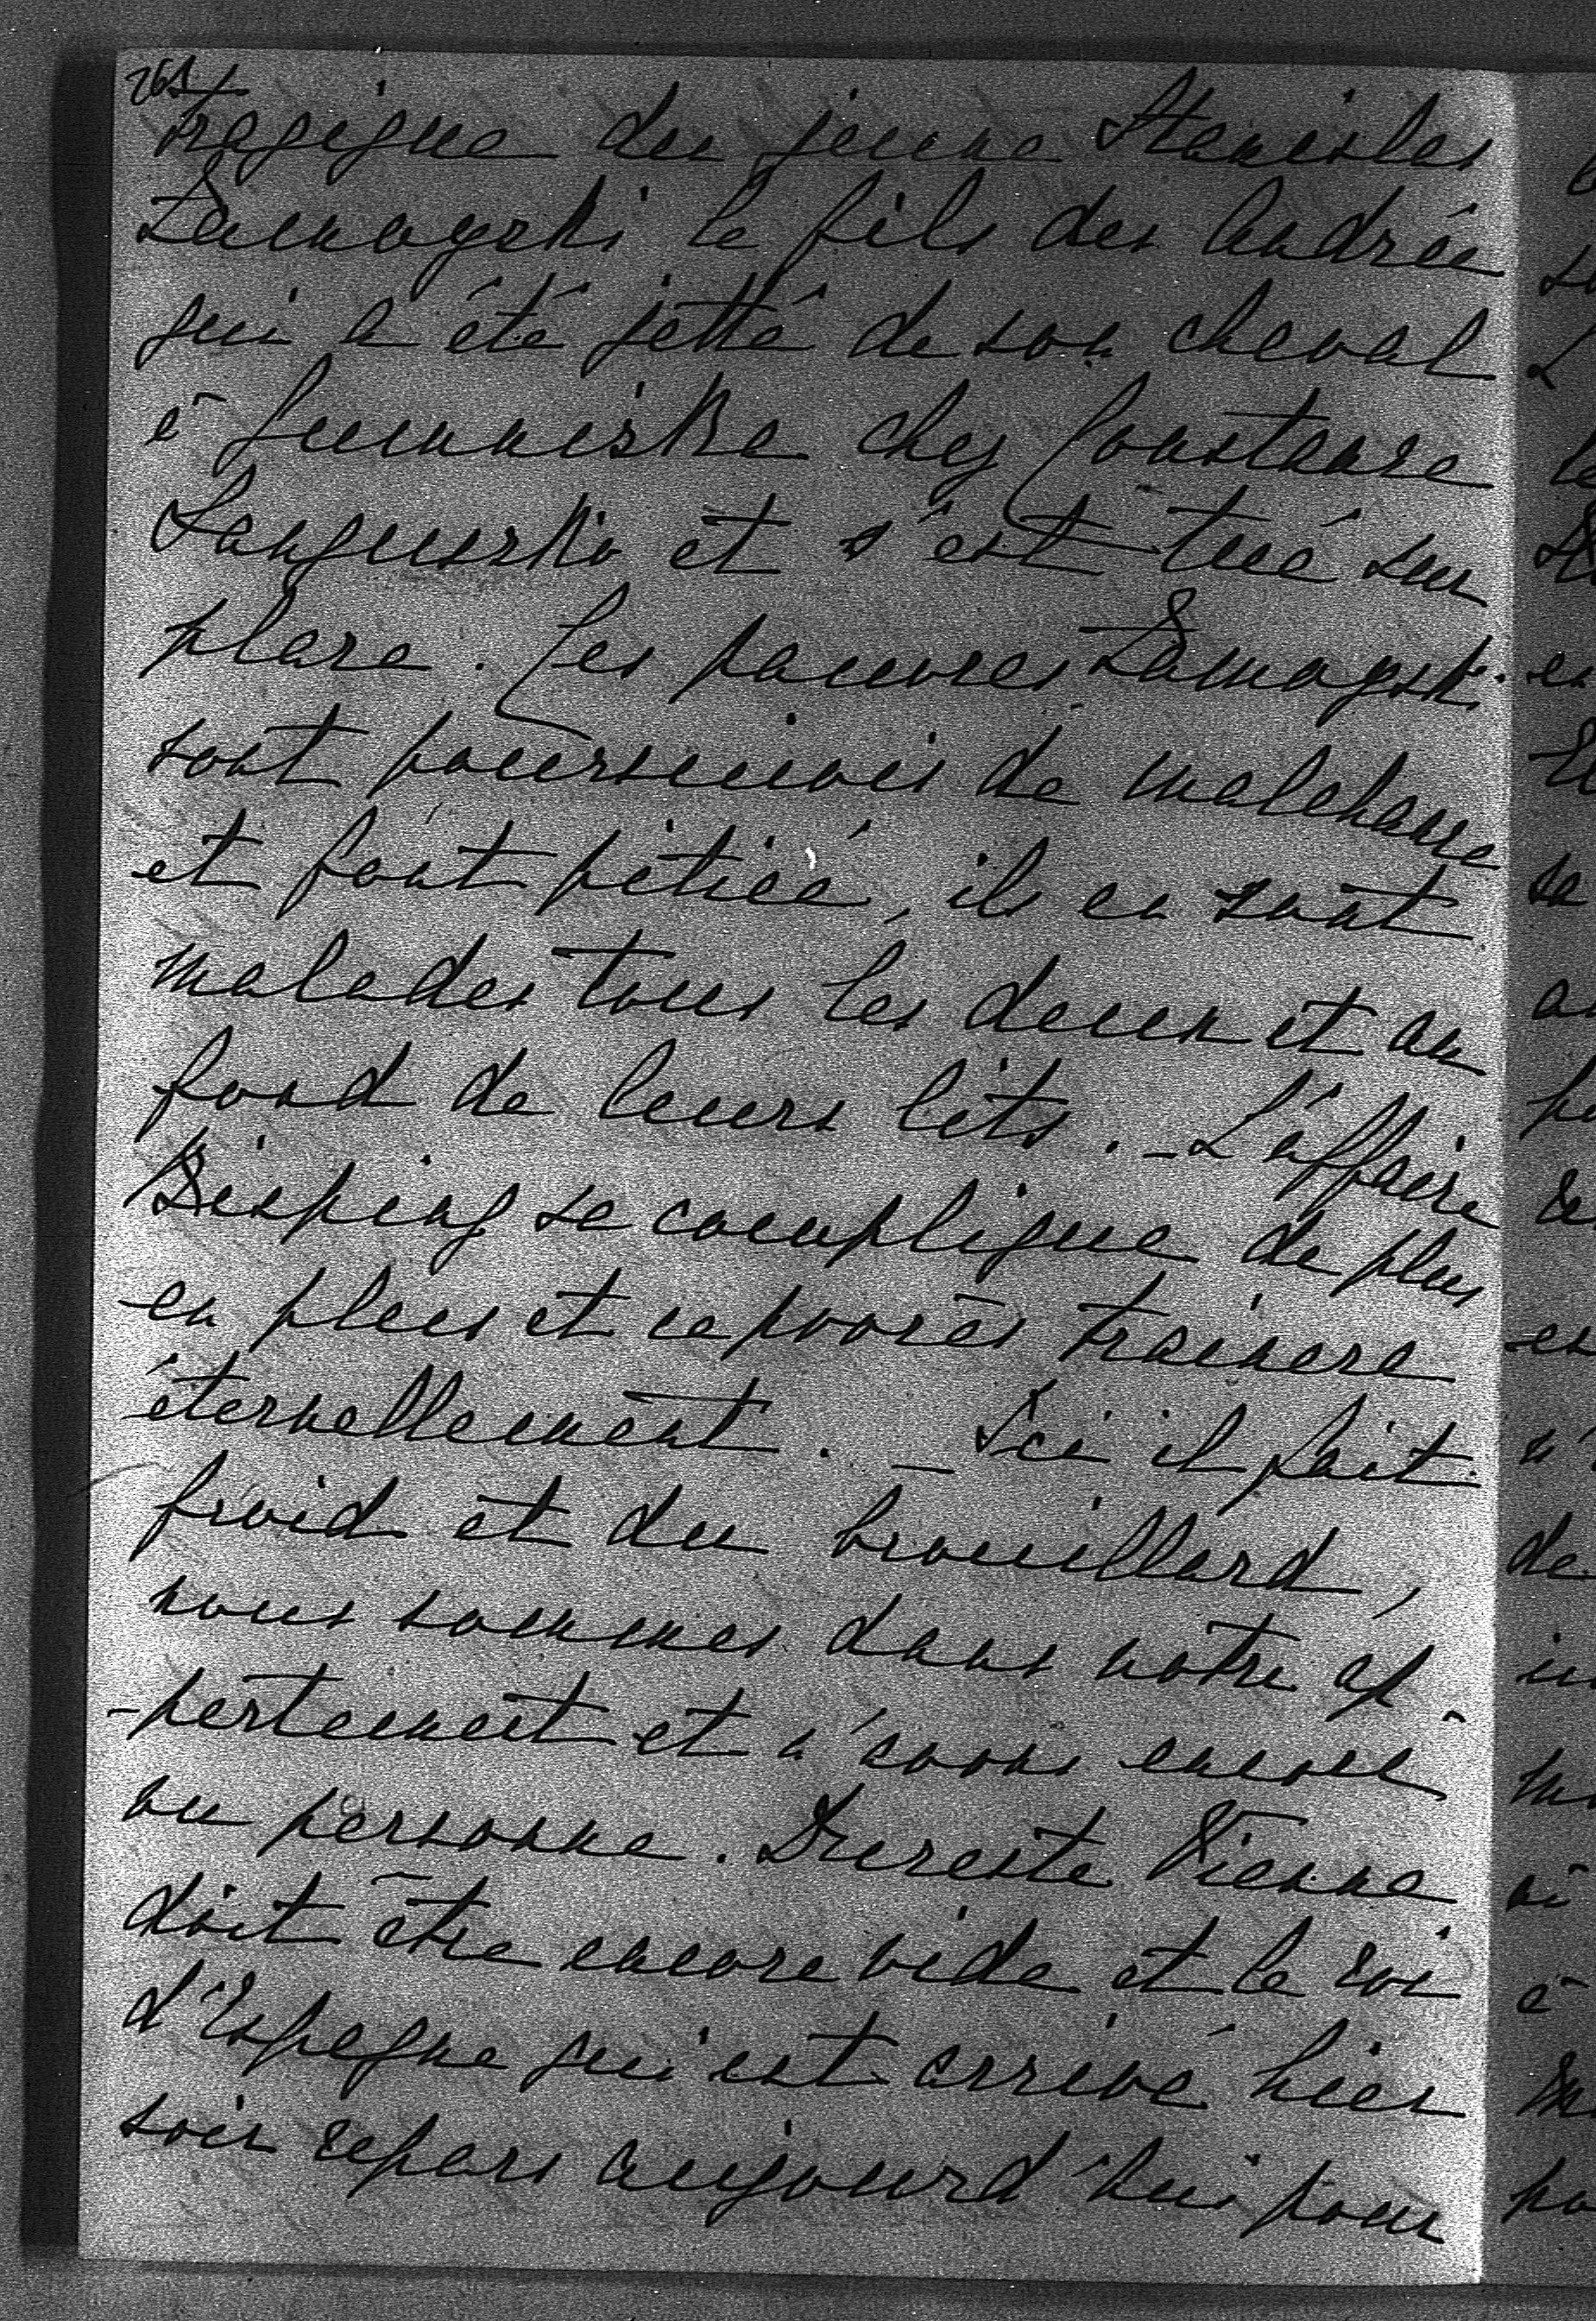 261
tragique du jeune Stanislas
Zamoyski le fils des André
qui a été jetté de son cheval
à Gumniska chez Constance
Sanguszko et s'est tué sur
place. Ces pauvres Zamoyski
sont poursuivis de malchance
et font pitié, ils en sont
malades tous les deux et au
fond de leurs lits. _ L'affaire
Bisping se complique de plus
en plus et ce procès trainera
éternellement. _ Ici il fait
froid et du brouillard,
nous sommes dans notre ap-
-partement et n'avons encore
vu personne. Du reste Vienne
doit être encore vide et le roi
d'Espagne qui est arrivé hier
soir repars aujourd'hui pour